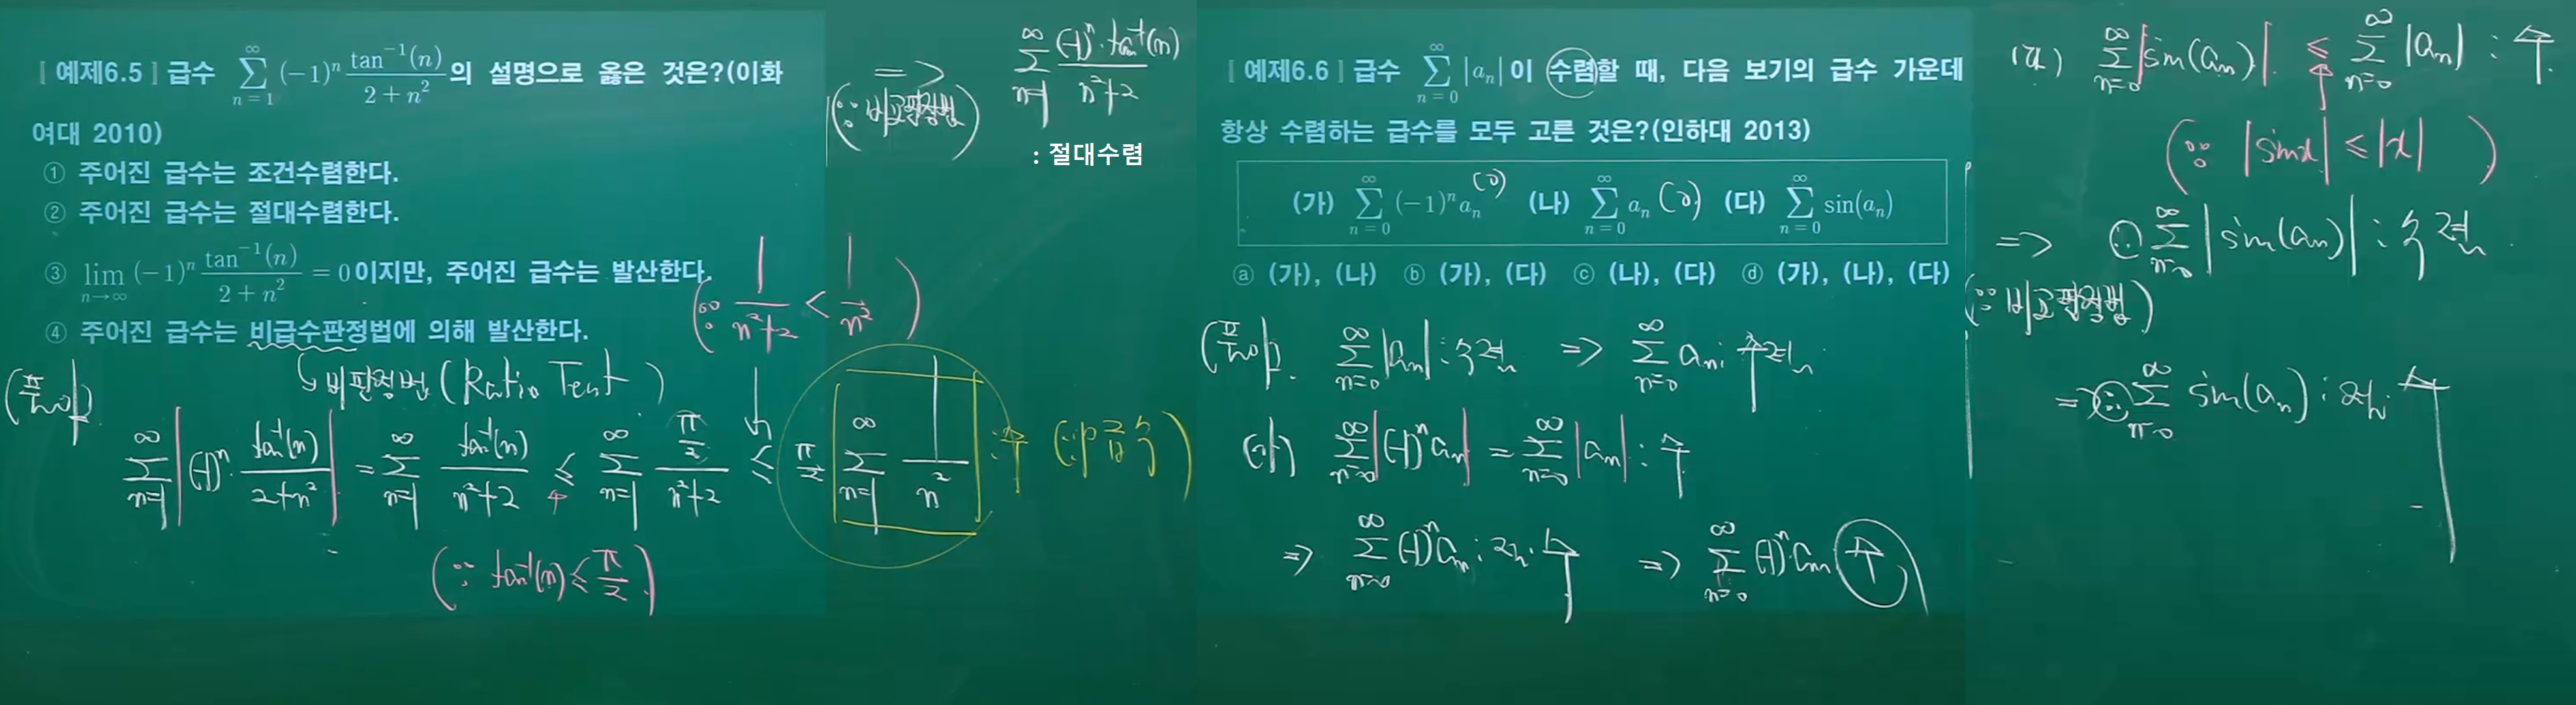 [예제6.5] 급수 $\sum_{n=1}^{\infty} (-1)^n \frac{\tan^{-1}(n)}{2+n^2}$의 설명으로 옳은 것은?(이화
여대 2010)
① 주어진 급수는 조건수렴한다.
② 주어진 급수는 절대수렴한다.
③ $\lim_{n\to\infty} (-1)^n \frac{\tan^{-1}(n)}{2+n^2} = 0$이지만, 주어진 급수는 발산한다.
④ 주어진 급수는 비급수판정법에 의해 발산한다.
↳ 비판정법 (Ratio Test)
(풀이)
$\sum_{n=1}^{\infty} \left|(-1)^n \cdot \frac{\tan^{-1}(n)}{2+n^2}\right| = \sum_{n=1}^{\infty} \frac{\tan^{-1}(n)}{n^2+2} \le \sum_{n=1}^{\infty} \frac{\frac{\pi}{2}}{n^2+2} \le \frac{\pi}{2} \sum_{n=1}^{\infty} \frac{1}{n^2}$ : 수 (∵ p급수)
(∵ $\tan^{-1}(n) \le \frac{\pi}{2}$)
(∵ $\frac{1}{n^2+2} < \frac{1}{n^2}$)
⇒ $\sum_{n=1}^{\infty} \frac{(-1)^n \cdot \tan^{-1}(n)}{n^2+2}$
(∵ 비교판정법)
: 절대수렴
[예제6.6] 급수 $\sum_{n=0}^{\infty} |a_n|$이 수렴할 때, 다음 보기의 급수 가운데
항상 수렴하는 급수를 모두 고른 것은?(인하대 2013)
(가) $\sum_{n=0}^{\infty} (-1)^n a_n$ (o) (나) $\sum_{n=0}^{\infty} a_n$ (o) (다) $\sum_{n=0}^{\infty} \sin(a_n)$
ⓐ (가), (나) ⓑ (가), (다) ⓒ (나), (다) ⓓ (가), (나), (다)
(풀이). $\sum_{n=0}^{\infty} |a_n|$ : 수렴 ⇒ $\sum_{n=0}^{\infty} a_n$ : 수렴
$\sum_{n=0}^{\infty} |(-1)^n a_n| = \sum_{n=0}^{\infty} |a_n|$ : 수
⇒ $\sum_{n=0}^{\infty} (-1)^n a_n$ : 절. 수 ⇒ $\sum_{n=0}^{\infty} (-1)^n a_n$ 수
(다) $\sum_{n=0}^{\infty} |\sin(a_n)| \le \sum_{n=0}^{\infty} |a_n|$ : 수.
(∵ $|\sin x| \le |x|$)
⇒ ∴ $\sum_{n=0}^{\infty} |\sin(a_n)|$ : 수렴.
(∵ 비교판정법)
⇒ ∴ $\sum_{n=0}^{\infty} \sin(a_n)$ : 절. 수